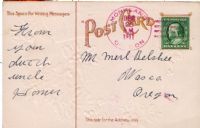 This Space for Writing Messages
POST CARD
From
your
dutch
uncle
Homer
Mr. Merl Belshee
Wasco
Oregon
This side for the Address only